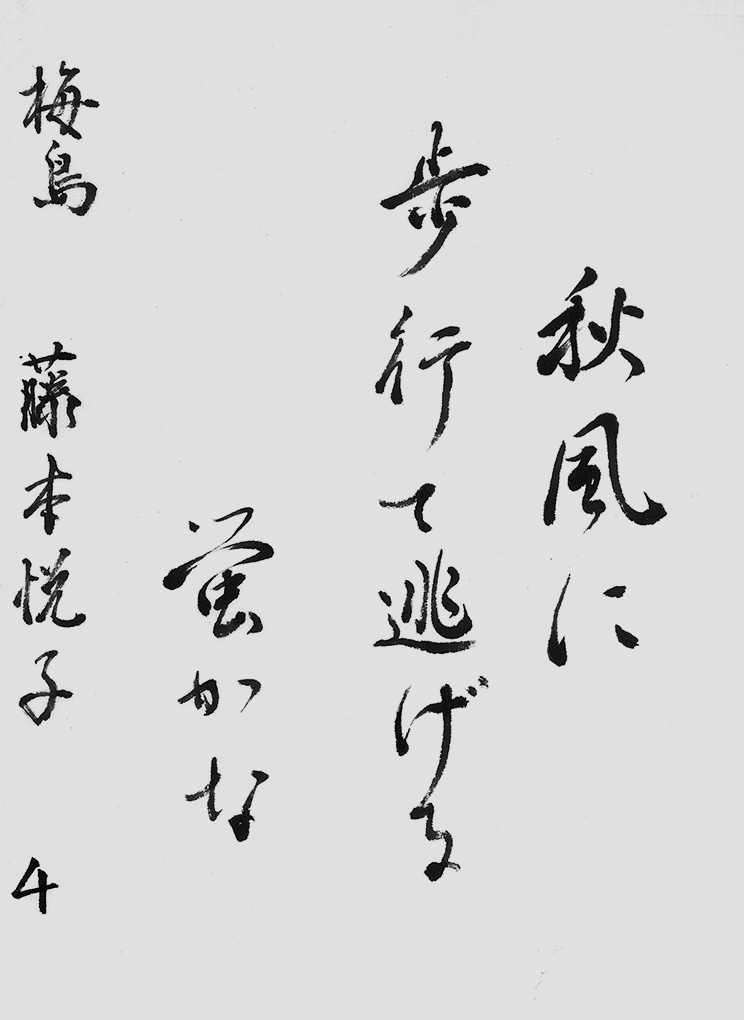 秋風に
歩行て逃げる
蛍かな
梅島 藤本悦子 4